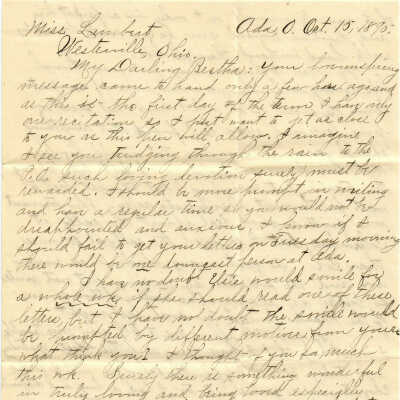 Miss Lambert Ada, O. Oct. 15, 1895.
Westerville, Ohio.
My Darling Bertha: Your love inspiring
message came to hand only a few hrs. ago and
as this is the first day of the term I have only
one recitation so I just want to get as close
to you as this pen will allow. I imagine
I see you trudging through the rain to the
P.O. such loving devotion surely must be
rewarded. I should be more prompt in writing
and have a regular time so you would not be
disappointed and anxious, I know if I
should fail to get your letter on Tuesday morning
there would be one lonesome person at Ada.
I have no doubt would smile for
a whole wk. if she should read one of these
letters, but I have no doubt the smile would
be prompted by different motives from yours
what think you? I thought of you so much
this wk. Surely there is something wonderful
in truly loving and being loved especially